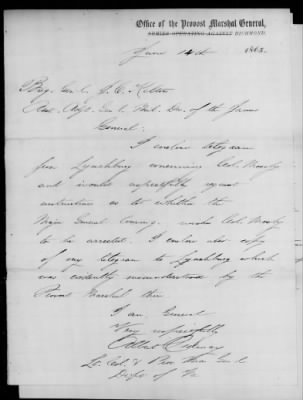 Office of the Provost Marshal General,
ARMIES OPERATING AGAINST RICHMOND,
June 14th 1865.
Brig. Genl.
Asst. Adjt. Genl. Mil. Div. of the James
General:
I enclose telegram
from Lynchburg concerning Col. Mosby
and would respectfully request
instructions as to whether the
Major General Comdg. wishes Col. Mosby
to be arrested. I enclose also copy
of my telegram to Lynchburg which
was evidently misunderstood by the
Provost Marshal there
I am General
Very respectfully
Lt. Col. & Pro. Mar. Genl.
Dept of Va